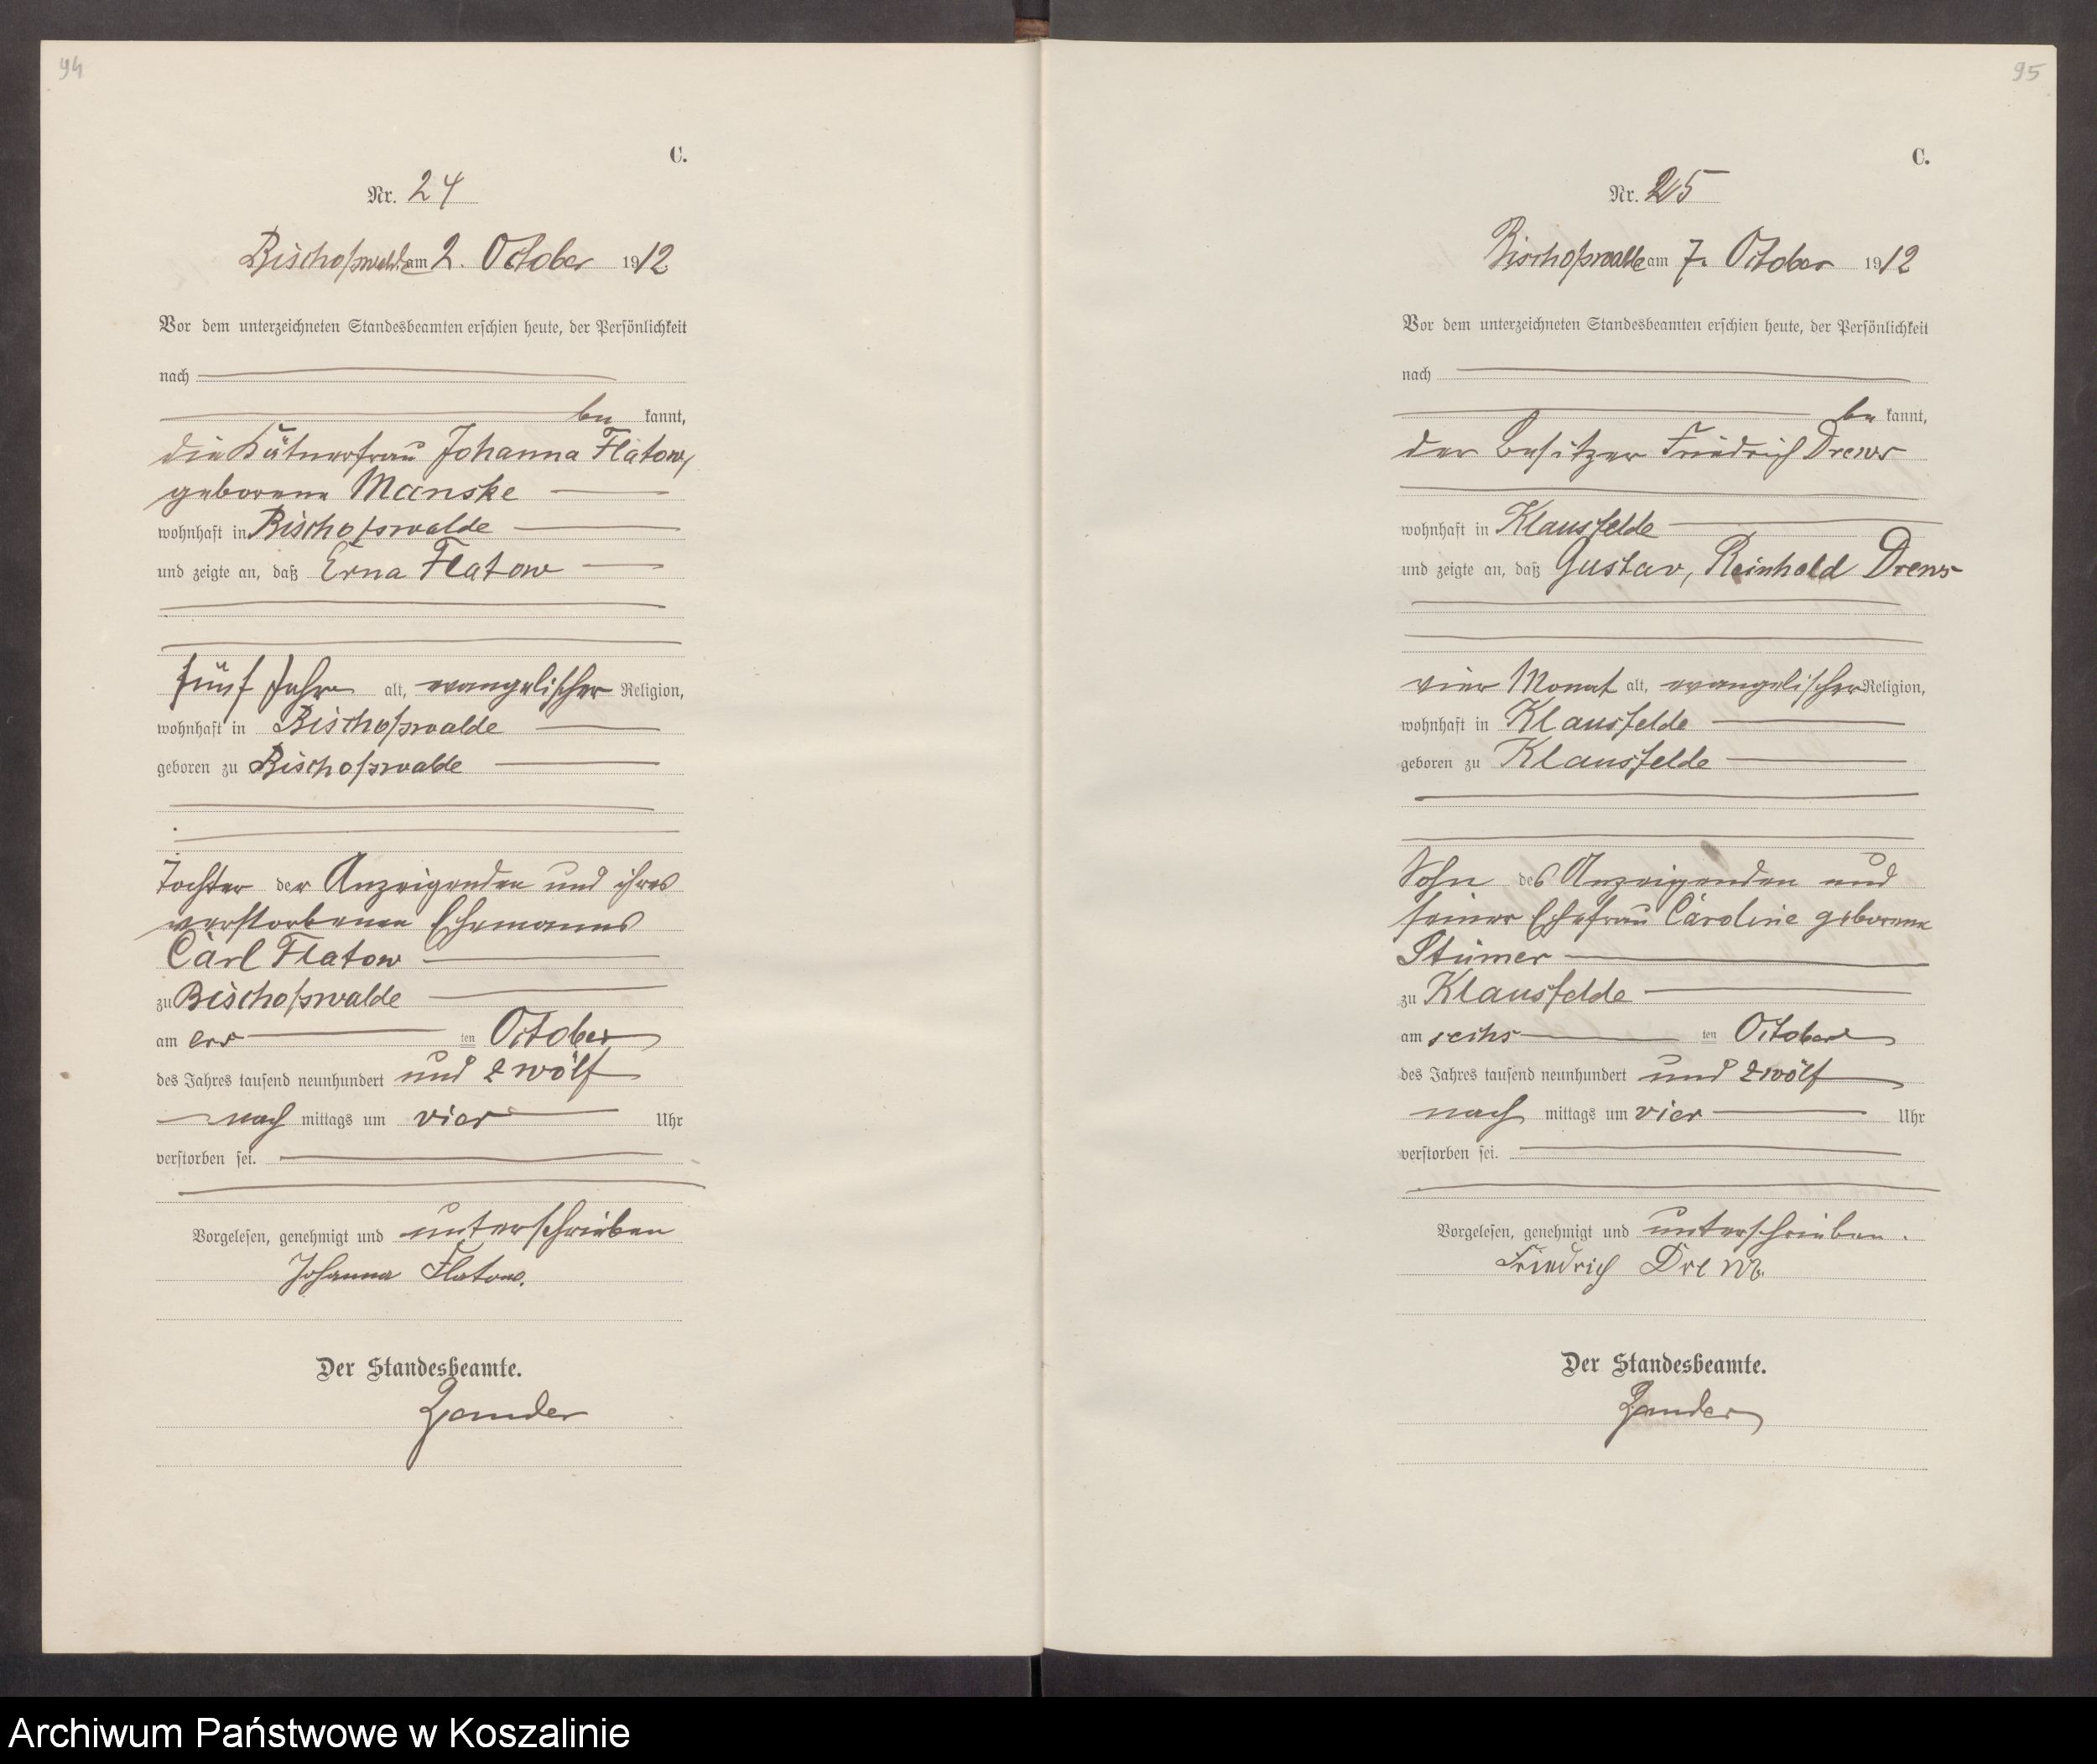 94
C.
Nr. 24
Bischofswalde am 2. October 1912
Vor dem unterzeichneten Standesbeamten erschien heute, der Persönlichkeit
nach
be kannt,
die Kätnerfrau Johanna Flatow,
geborene Manske
wohnhaft in Bischofswalde
und zeigte an, daß Erna Flatow
fünf Jahre alt, evangelischer Religion,
wohnhaft in Bischofswalde
geboren zu Bischofswalde
Tochter der Anzeigenden und ihres
verstorbenen Ehemanns
Carl Flatow
zu Bischofswalde
am ers ten October
des Jahres tausend neunhundert und zwölf
nach mittags um vier Uhr
verstorben sei.
Vorgelesen, genehmigt und unterschrieben
Johanna Flatow.
Der Standesbeamte.
Zander
95
C.
Nr. 25
Bischofswalde am 7. October 1912
Vor dem unterzeichneten Standesbeamten erschien heute, der Persönlichkeit
nach
be kannt,
der Besitzer Friedrich Drews
wohnhaft in Klausfelde
und zeigte an, daß Gustav, Reinhold Drews
vier Monat alt, evangelischer Religion,
wohnhaft in Klausfelde
geboren zu Klausfelde
Sohn des Anzeigenden und
seiner Ehefrau Caroline geborene
Stümer
zu Klausfelde
am sechs ten October
des Jahres tausend neunhundert und zwölf
nach mittags um vier Uhr
verstorben sei.
Vorgelesen, genehmigt und unterschrieben.
Friedrich Drews.
Der Standesbeamte.
Zander
Archiwum Państwowe w Koszalinie